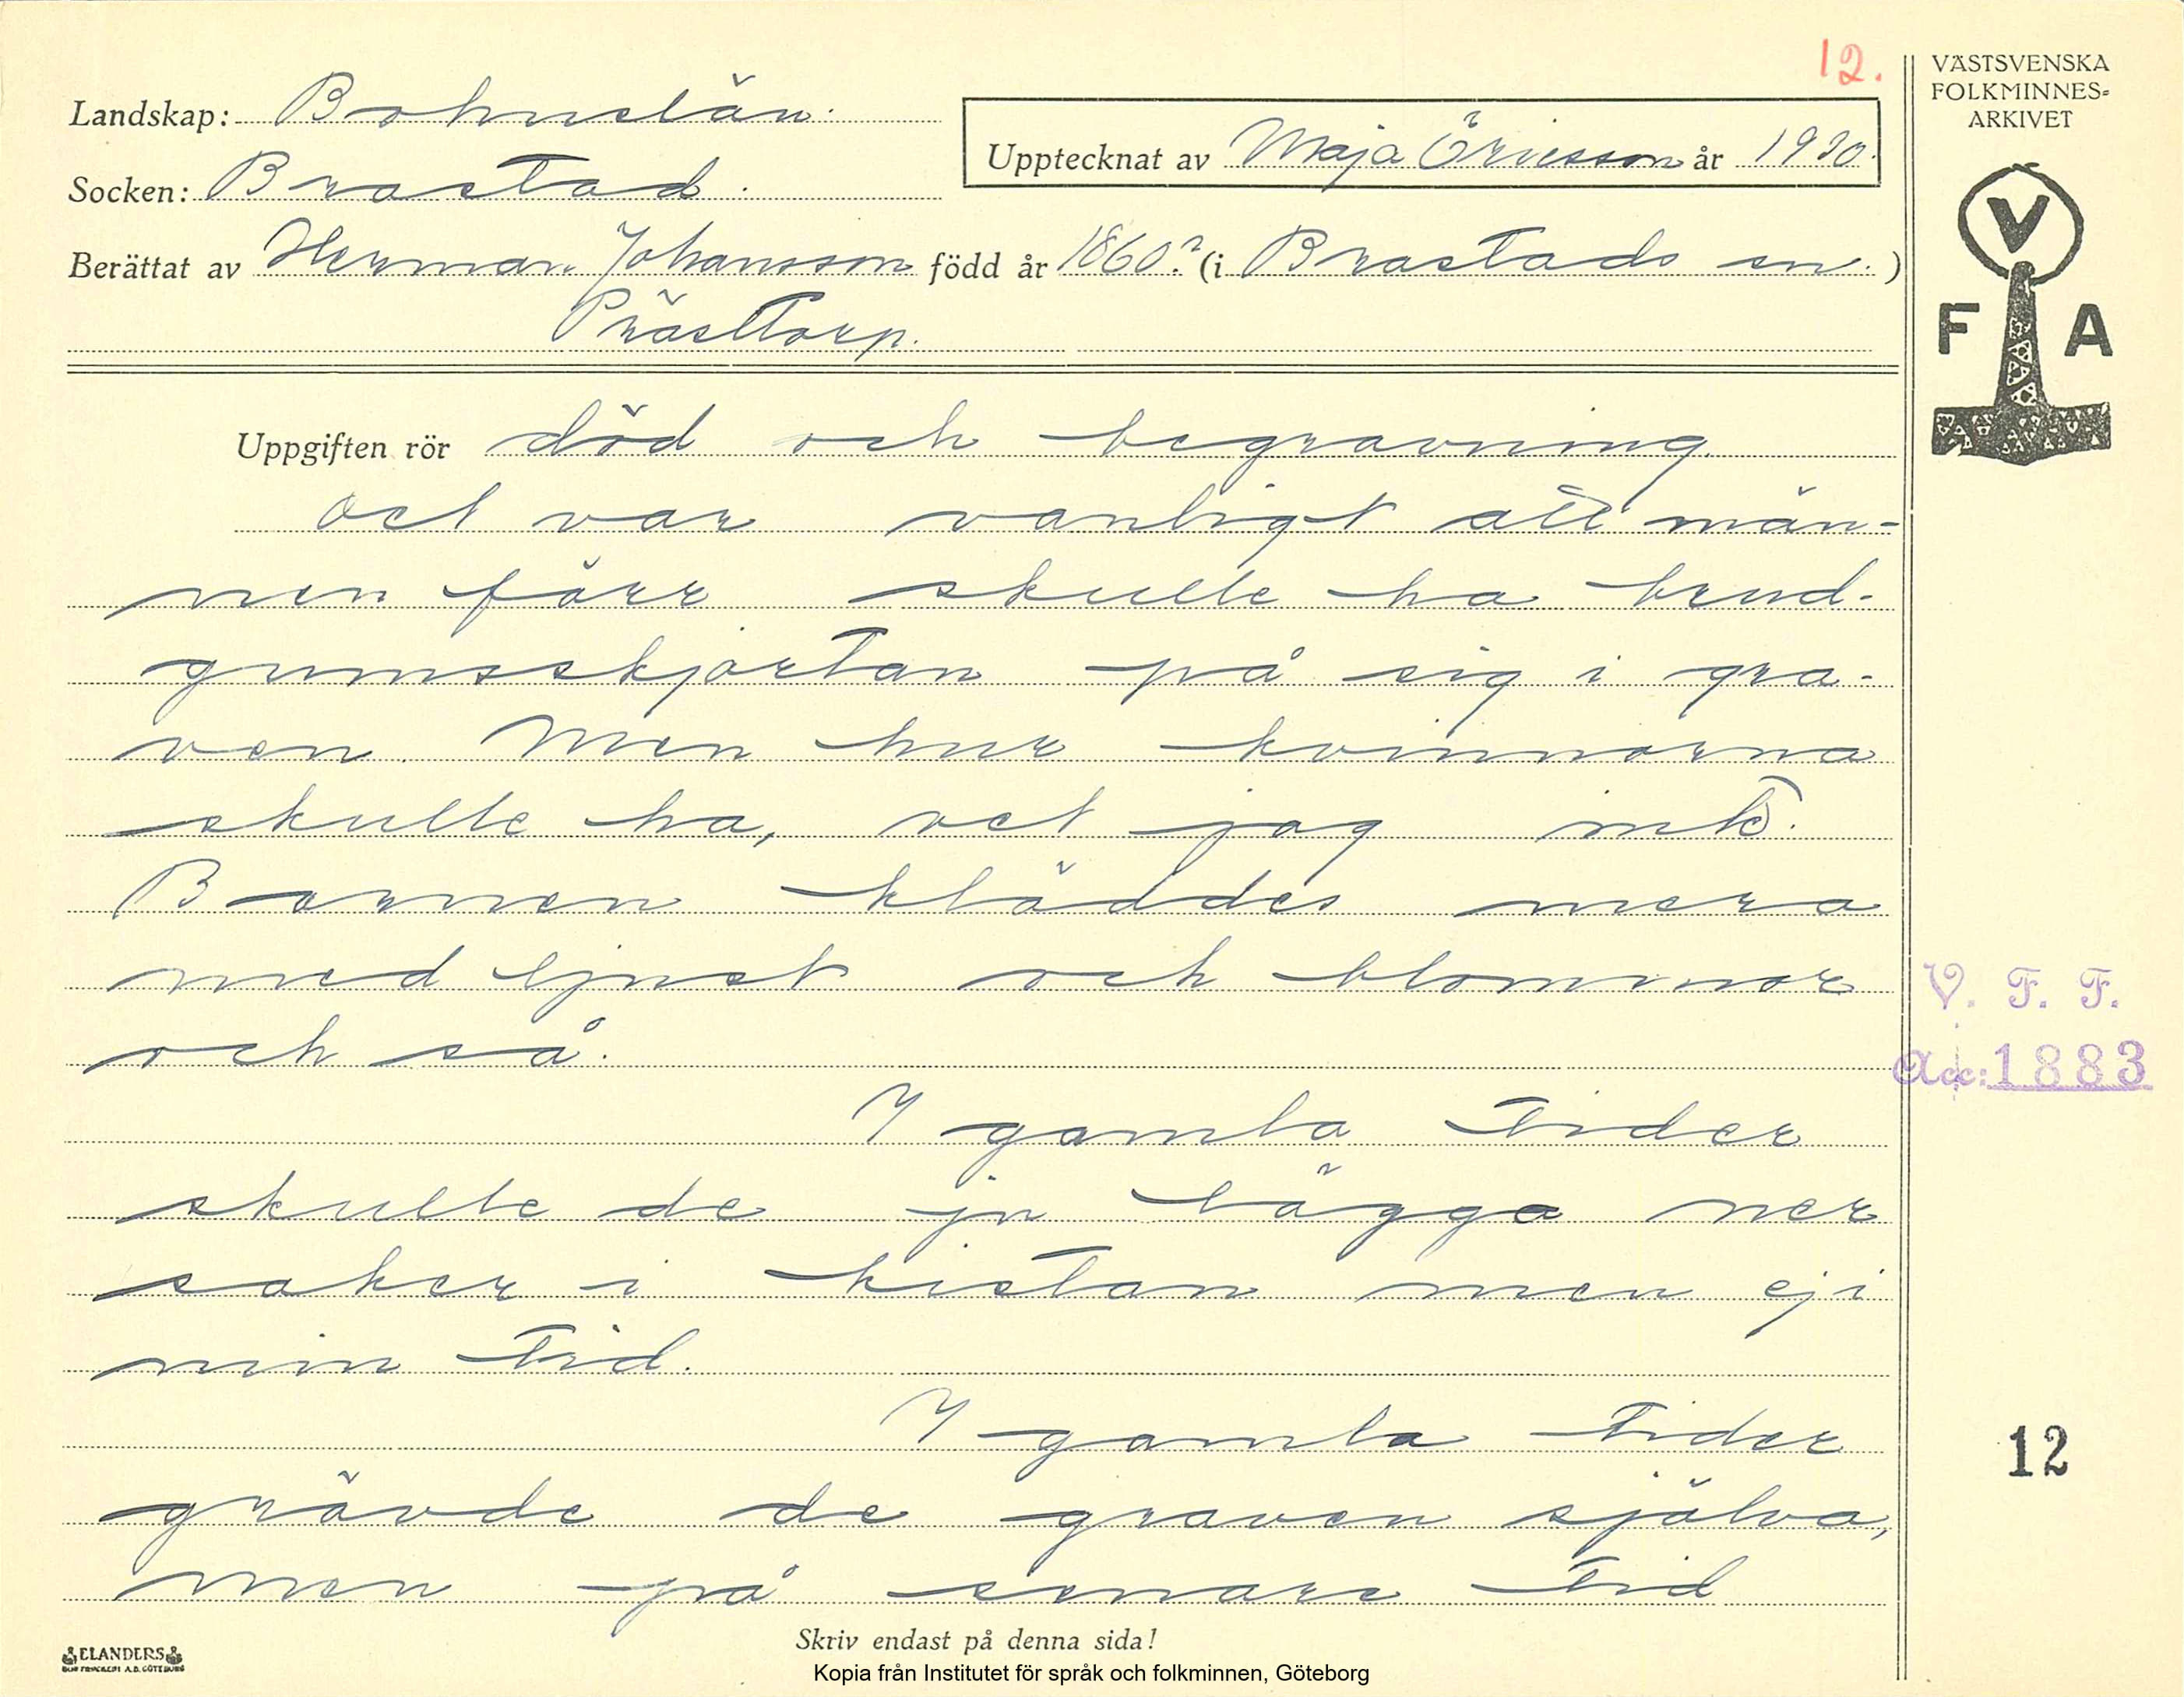 12.
VÄSTSVENSKA
FOLKMINNES=
ARKIVET
Landskap: Bohuslän.
Upptecknat av Maja Ericsson år 1930.
Socken: Brastad.
Berättat av Herman Johansson född år 1860? (i Brastads sn.)
Prästtorp.
V
F A
Uppgiften rör död och begravning.
Det var vanligt att män-
nen förr skulle ha brud-
gumsskjortan på sig i gra-
ven. Men hur kvinnorna
skulle ha, vet jag inte.
Barnen kläddes mera
med ljust och blommor
och så.
V. F. F.
Acc: 1883
I gamla tider
skulle de ju lägga ner
saker i kistan men ej i
min tid.
I gamla tider
grävde de graven själva,
men på senare tid
12
Skriv endast på denna sida!
ELANDERS
Kopia från Institutet för språk och folkminnen, Göteborg